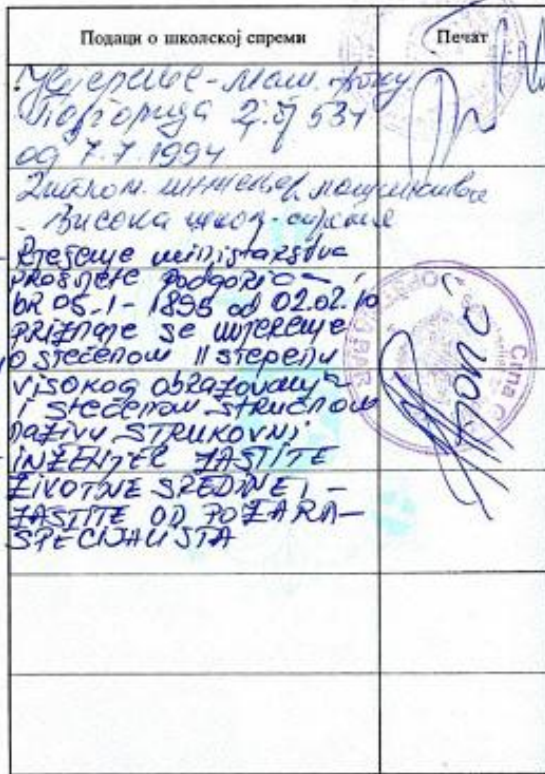 Подаци о школској спреми
Печат
Увјерење - Маш. фак.
Подгорица 2.ој 534
од 7.7.1994
Диплом. инжењер машинства
- Висока школ. спрема
Rješenje ministarstva
prosvjete Podgorica
br 05-1-1895 od 02.02.10
priznaje se uvjerenje
o stečenom II stepenu
visokog obrazovanja
i stečenom stručnom
nazivu STRUKOVNI
INŽENJER ZAŠTITE
ŽIVOTNE SREDINE I -
ZAŠTITE OD POŽARA -
SPECIJALISTA
Crna